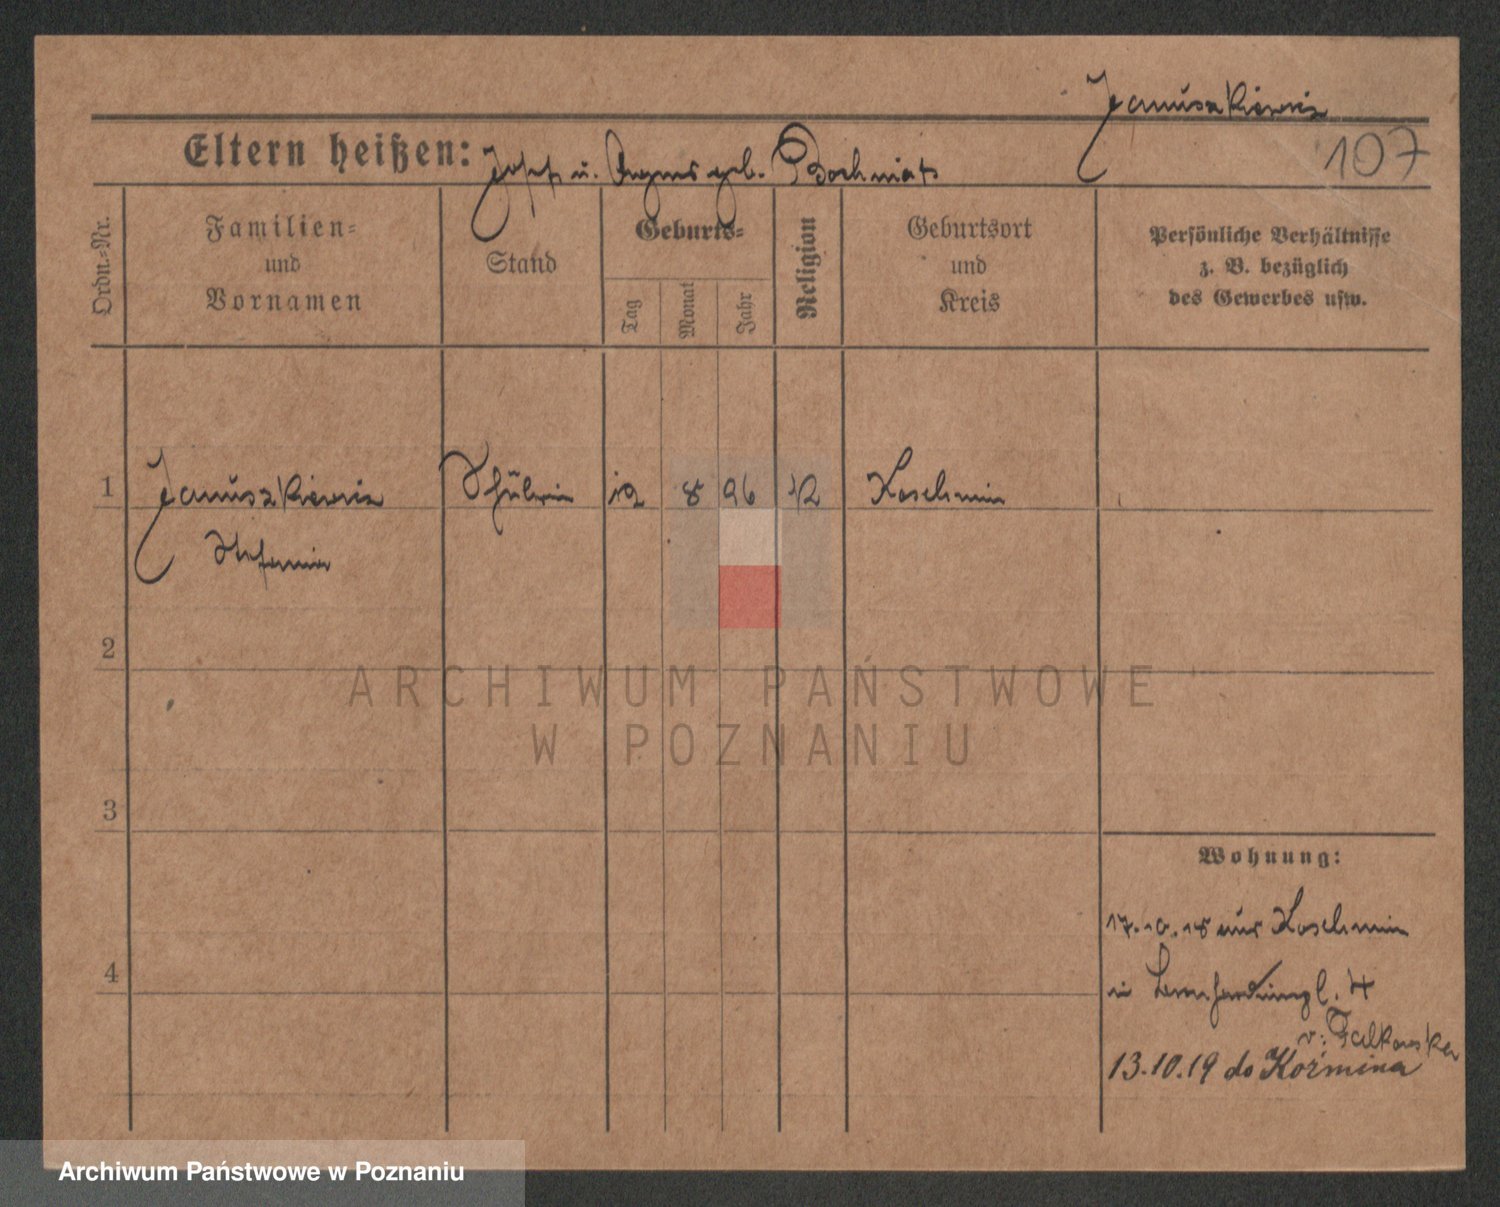 Januszkiewicz
107
Eltern heißen: Josef u. Agnes geb. Pochmiats
Ordn.-Nr.
Familien-
und
Vornamen
Stand
Geburts-
Tag
Monat
Jahr
Religion
Geburtsort
und
Kreis
Persönliche Verhältnisse
z. B. bezüglich
des Gewerbes usw.
1 Januszkiewicz Schülerin 12 8 96 K Koschmin
Stefania
2
ARCHIWUM PAŃSTWOWE
W POZNANIU
3
Wohnung:
17.10.18 aus Koschmin
4
in Bernhardinerpl. 4
v. Falkowska
13.10.19 do Koźmina
Archiwum Państwowe w Poznaniu